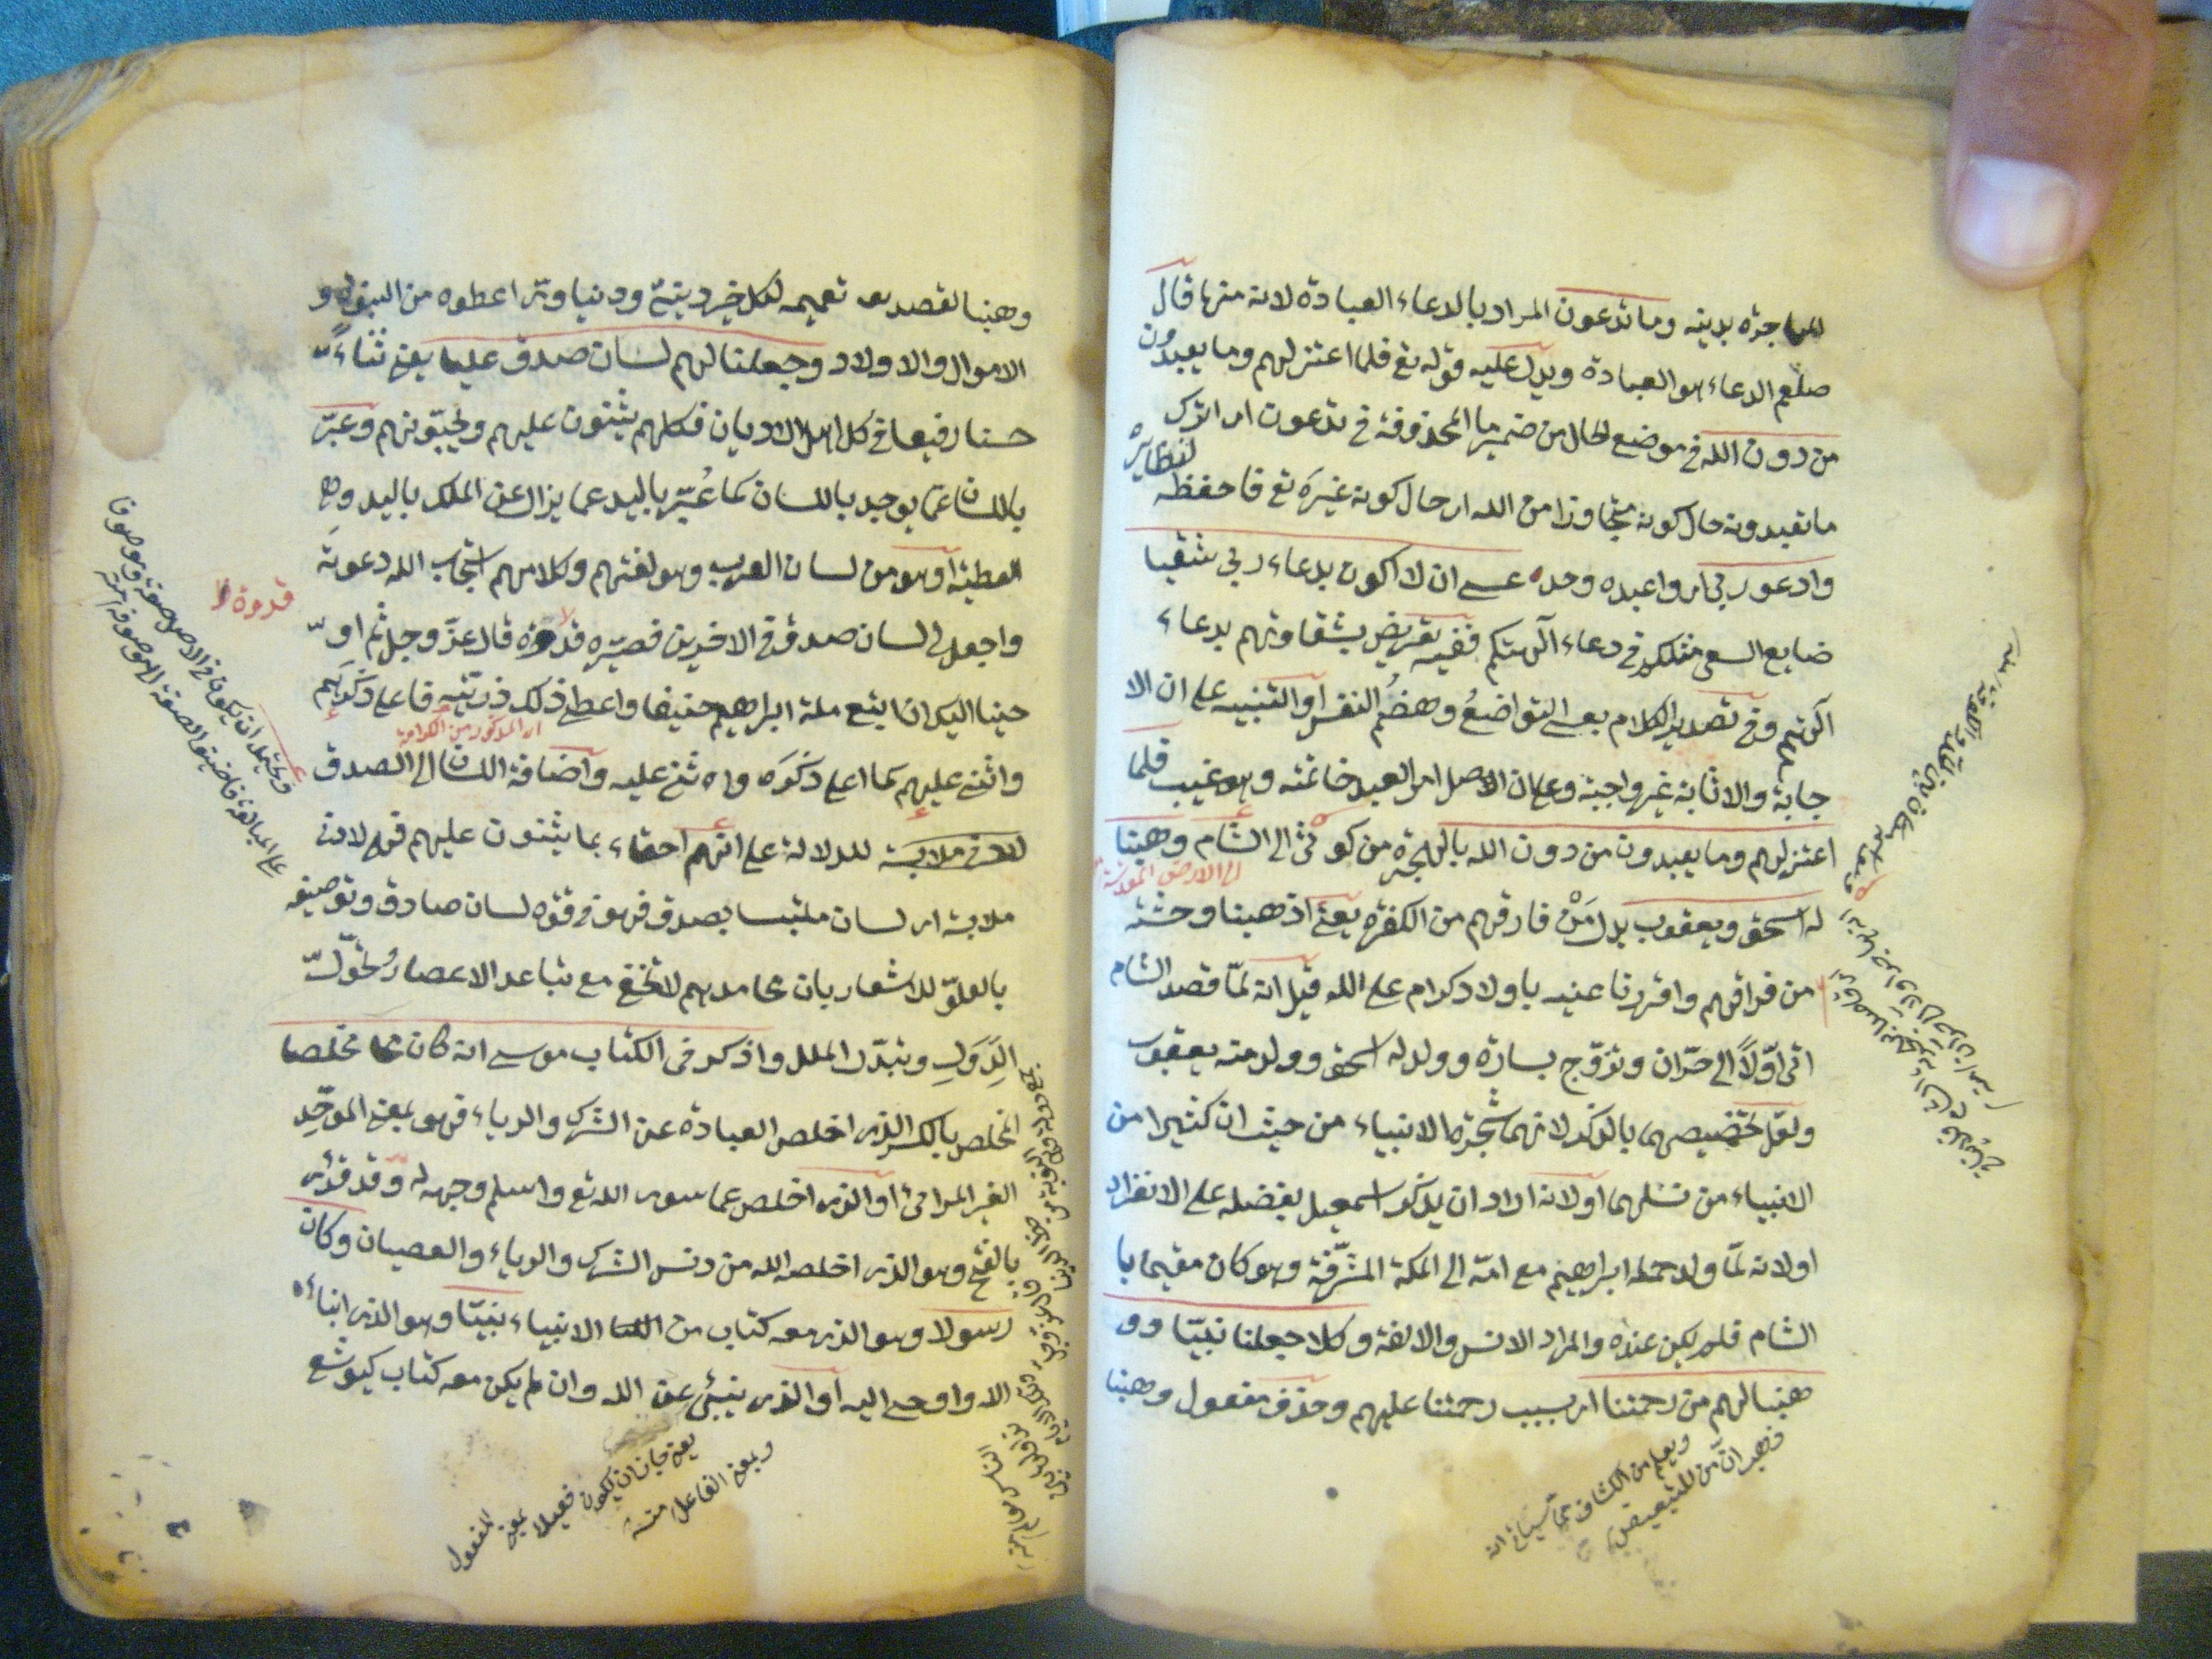 المهاجرة بدينه وما تدعون المراد بالدعاء العبادة لانه منها قال
صلعم الدعاء هو العبادة ويدل عليه قوله تع فلما اعتزلهم وما يعبدون
من دون الله في موضع الحال من ضمير ما المحذوفة في تدعون اى اترك
ما تعبدونه حال كونه متجاوزا من الله اى حال كونه غيره تع فاحفظه
لنظايره
وادعو ربي اى واعبده وحده عسى ان لا اكون بدعاء ربي شقيا
ضايع السعى مثلكم في دعاء آلهتكم ففيه تعريض بشقاوتهم بدعاء
آلهتهم وفي تصدير الكلام بعسى التواضع وهضم النفس او التنبيه على ان الا
جابة والاثابة غير واجبة وعلى ان الاصل امر العبد خاتمته وهو غيب فلما
اعتزلهم وما يعبدون من دون الله بالهجرة من كوثى الى الشام وهبنا
الى الارض المقدسة
له اسحق ويعقوب بدل من فارقهم من الكفرة يعنى اذهبنا وحشته
من فراقهم واقررنا عينيه باولاد كرام على الله قيل انه لما قصد الشام
اتى اولا الى حران وتزوج بسارة وولد له اسحق وولد منه يعقوب
ولعل تخصيصهما بالذكر لانهما شجرة الانبياء من حيث ان كثيرا من
الانبياء من نسلهما او لانه اراد ان يذكر اسمعيل بفضله على الانفراد
او لانه لما ولد حمله ابراهيم مع امه الى المكة المشرفة وهو كان مقيما با
الشام فلم يكن عنده والمراد الانس والالفة وكلا جعلنا نبيا وو
هبنا لهم من رحمتنا اى بسبب رحمتنا عليهم وحذف مفعول وهبنا
ويعلم من الكشاف
ان من للتبعيض
وهبنا لقصد تعميمه لكل خير دينى ودنياوى اعطوه من النبوة و
الاموال والاولاد وجعلنا لهم لسان صدق عليا يعنى ثناء
حسنا رفيعا في كل اهل الاديان فكلهم يثنون عليهم ويحبونهم وعبر
باللسان عما يوجد باللسان كما عبر باليد عما يزال عن الملك باليد وهى
العطية او هو من لسان العرب وهو لغتهم وكلامهم استجاب الله دعوته
واجعل لى لسان صدق في الاخرين فصيره قدوة قال عز وجل ثم او
قدوة
حينا اليك ان اتبع ملة ابراهيم حنيفا واعطى ذلك ذريته فاعلى ذكرهم
اى المذكور من الكرامة
واثنى عليهم كما اعلى ذكره واثنى عليه واضافة اللسان الى الصدق
لادنى ملابسة للدلالة على انهم احقاء بما يثنون عليهم قوله لادنى
ملابسة اى لسان ملتبسا بصدق فهو في قوة لسان صادق وتوصيفه
بالعلو للاشعار بان محامدهم لا تخفى مع تباعد الاعصار وتحول
الدول وتبدل الملل واذكر فى الكتاب موسى انه كان مخلصا
المخلص بالكسر الذى اخلص العبادة عن الشرك والرياء فهو بمعنى الموحد
الغير المرائى او الذى اخلص عما سوى الله تع واسلم وجهه له وقد قرئ
بالفتح وهو الذى اخلصه الله من دنس الشرك والرياء والعصيان وكان
رسولا وهو الذى معه كتاب من الانبياء نبيا وهو الذى انباءه
الله واوحى اليه او الذى ينبئ عن الله وان لم يكن معه كتاب كيوشع
ويحتمل ان يكون في الاصل صفة وموصوفا
فاضيف الصفة الى موصوفه
على المبالغة
يعنى جاز ان يكون فعيلا بمعنى المفعول
وبمعنى الفاعل منه